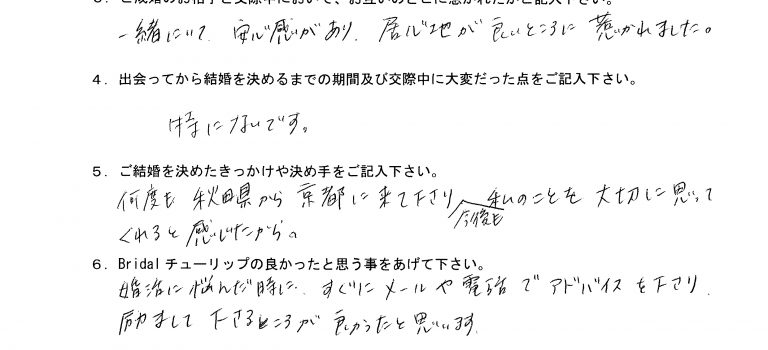 3．ご成婚のお相手と交際中において、お互いのどこに惹かれたかご記入下さい。
一緒にいて、安心感があり、居心地が良いところに惹かれました。
4．出会ってから結婚を決めるまでの期間及び交際中に大変だった点をご記入下さい。
特にないです。
5．ご結婚を決めたきっかけや決め手をご記入下さい。
何度も秋田県から京都に来て下さり、今後も私のことを大切に思って
くれると感じたから。
6．Bridalチューリップの良かったと思う事をあげて下さい。
婚活に悩んだ時に、すぐにメールや電話でアドバイスを下さり、
励まして下さるところが良かったと思います。